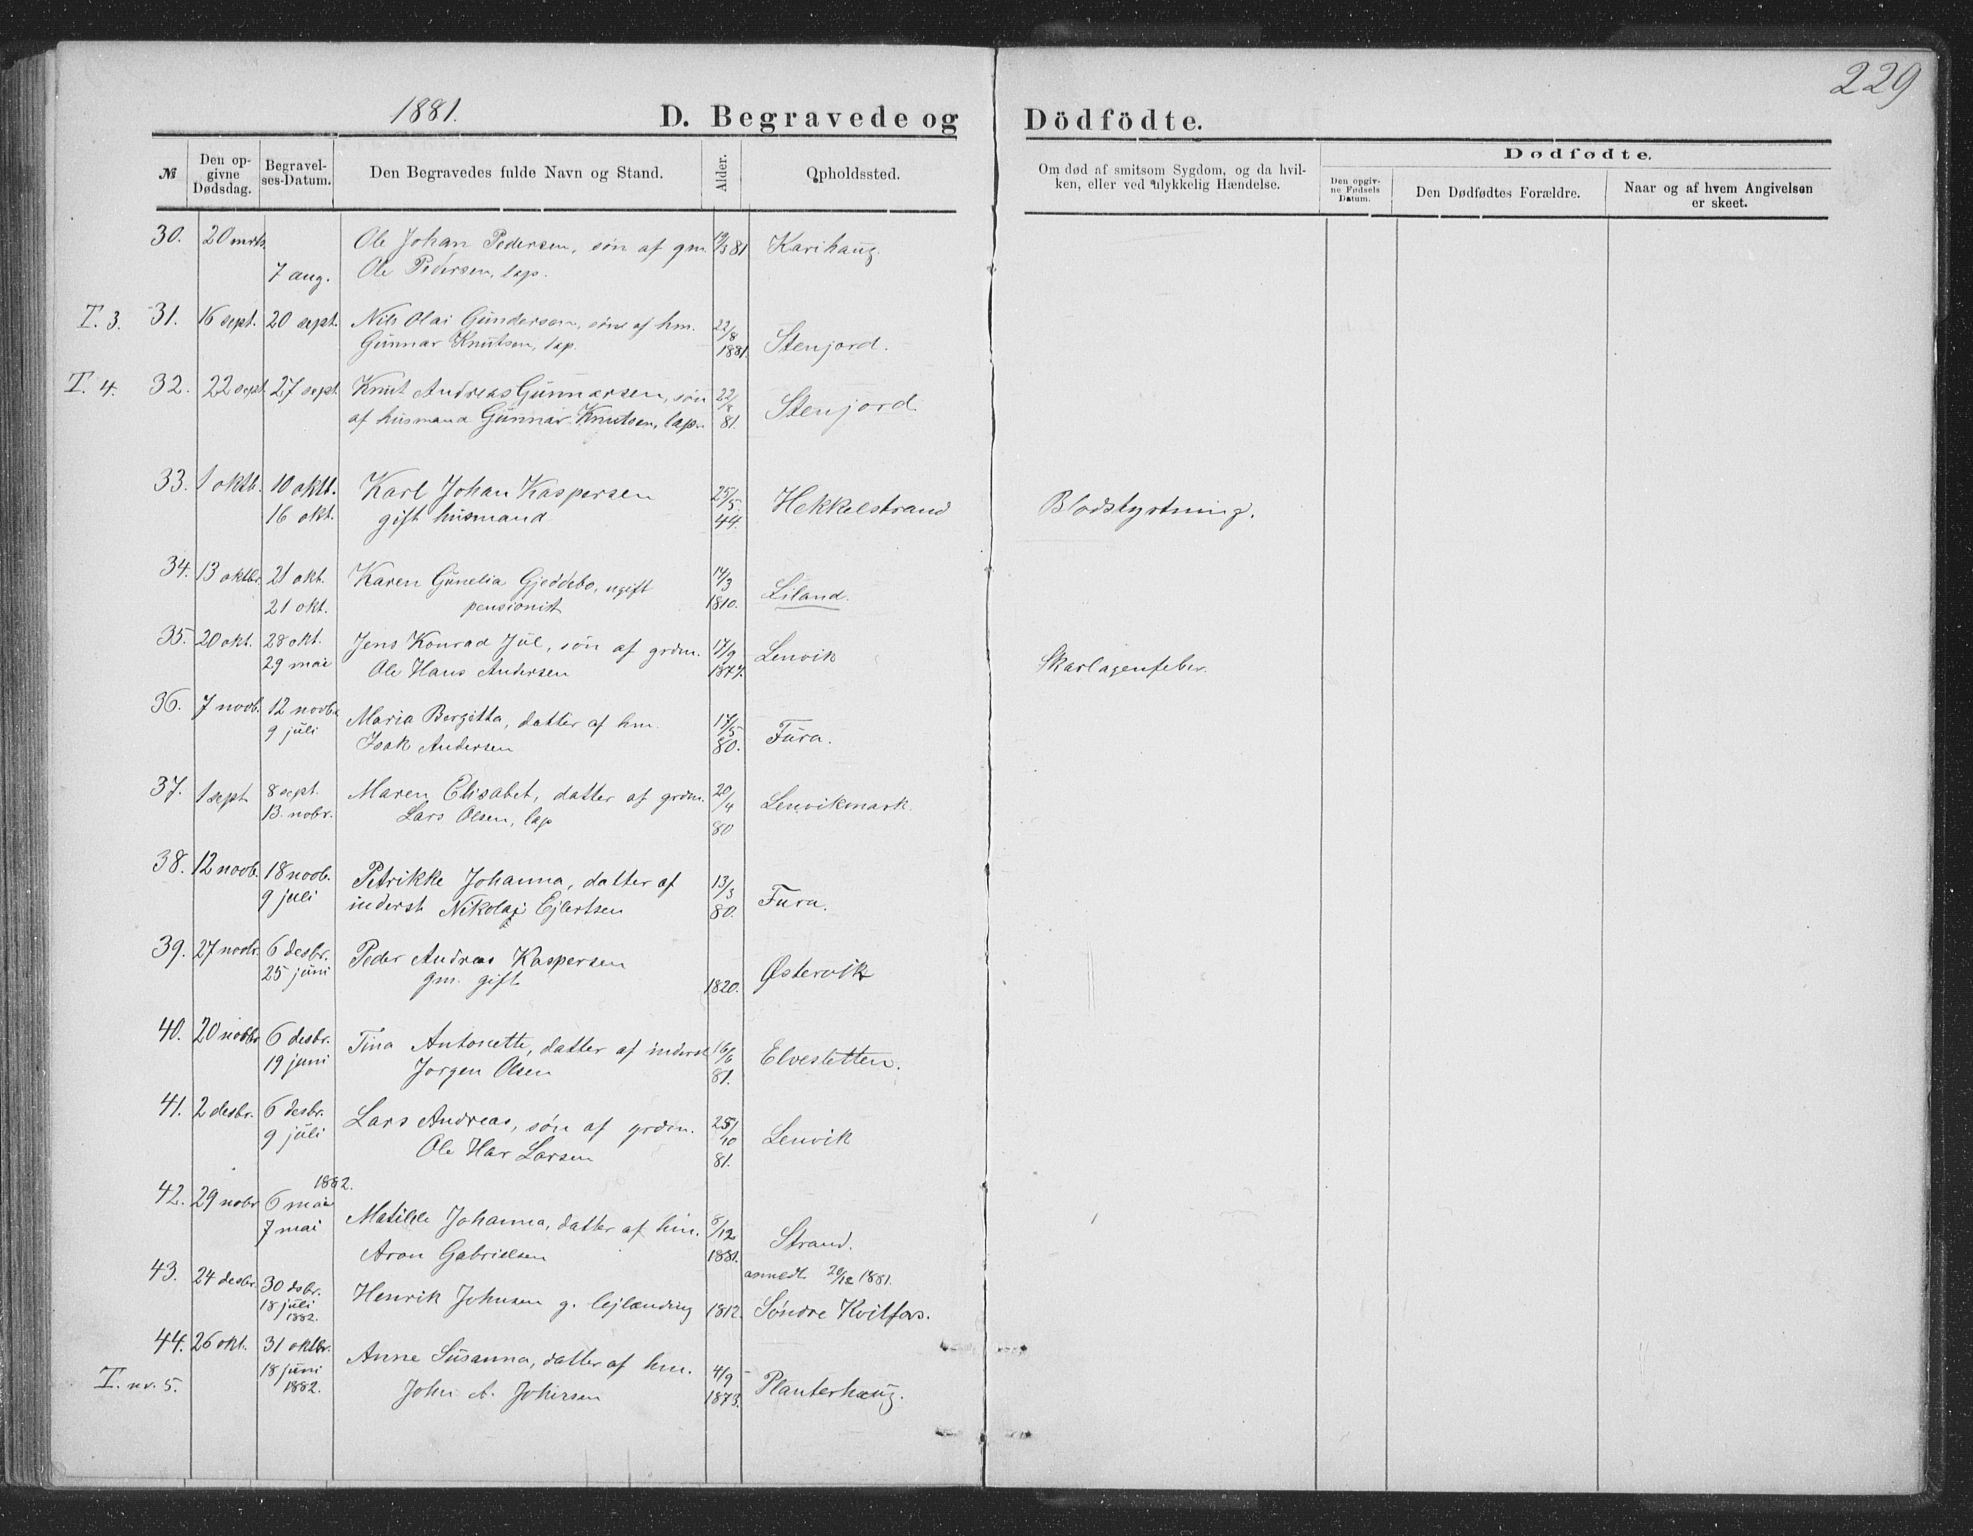 229
1881.
D. Begravede og Dödfödte.
№ Den opgivne Dødsdag. Begravelses-Datum. Den Begravedes fulde Navn og Stand. Alder. Opholdssted. Om død af smitsom Sygdom, og da hvilken, eller ved ulykkelig Hændelse. Dødfødte.
Den opgivne Fødsels Datum. Den Dødfødtes Forældre. Naar og af hvem Angivelsen er skeet.
30. 20 mrts Ole Johan Pedersen, søn af gm. 19/3 81 Karihaug.
7 aug. Ole Pedersen, lap.
T. 3. 31. 16 sept. 20 sept. Nils Olai Gundersen, søn af hm. 22/8 1881.
Gunnar Knutsen, lap. Stenjord.
T. 4. 32. 22 sept. 27 sept. Knut Andreas Gunnarsen, søn 22/8 81.
af husmand Gunnar Knutsen, lap. Stenjord.
33. 1 oktb. 10 oktb. Karl Johan Kaspersen 25/5 44. Hekkelstrand Blodstyrtning.
16 okt. gift husmand
34. 13 oktbr. 21 okt. Karen Gunelia Gjeddebo, ugift 14/3 1810. Liland.
21 okt. pensionist
35. 20 okt. 28 okt. Jens Konrad Jul, søn af grdm. 17/9 1877. Lenvik Skarlagenfeber.
29 mai Ole Hans Andersen
36. 7 novb. 12 novb. Maria Bergitta, datter af hm. 17/5 80. Fura.
9 juli Isak Andersen
37. 1 sept. 8 sept. Maren Elisabet, datter af grdm. 20/4 80 Lenvikmark.
13. nobr. Lars Olsen, lap
38. 12 novb. 18 novb. Petrikke Johanna, datter af 13/3 80. Fura.
9 juli inderst Nikolai Ejlertsen
39. 27 novbr. 6 desbr. Peder Andreas Kaspersen
25 juni gm. gift 1820. Østervik
40. 20 novbr 6 desbr. Tina Antonette, datter af inderst 16/6 81. Elvestetten.
19 juni Jørgen Olsen
41. 2 desbr. 6 desbr. Lars Andreas, søn af grdm. 25/10 81. Lenvik
9 juli Ole Har Larsen
1882.
42. 29 nobr 6 mai Matilde Johanna, datter af hm. 8/12 1881. Strand.
7 mai Aron Gabrielsen
43. 24 desbr. 30 dsbr. Henrik Johnsen g. lejlænding 1812. Søndre Kvitfors.
anmeldt 29/12 1881.
18 juli
1882.
44. 26 okt. 31 oktbr. Anne Susanna, datter af hm. 4/9 1873. Planterhaug.
18 juni John A. Johnsen
T. nr. 5. 1882.